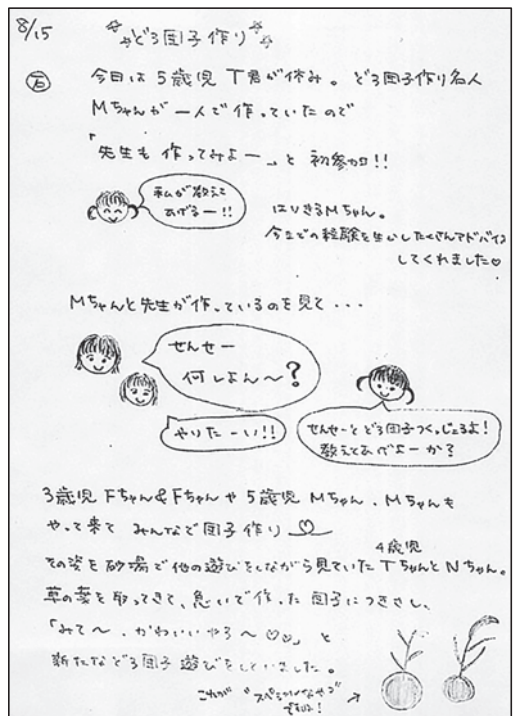 8/15
☆☆どろ団子作り☆☆
今日は5歳児 T君が休み。どろ団子作り名人
Mちゃんが一人で作っていたので
「先生も作ってみよー」と 初参加!!
私が教えて
あげるー!!
はりきるMちゃん。
今までの経験を生かしたくさんアドバイス
してくれました♡
Mちゃんと先生が作っているのを見て・・・
せんせー
何しよん〜?
やりたーい!!
せんせーと どろ団子つくっじょるよ!
教えてあげよーか?
3歳児 Fちゃん&Fちゃんや 5歳児 Mちゃん、Mちゃんも
やって来て みんなで団子作り♡
その姿を砂場で他の遊びをしながら見ていた 4歳児 TちゃんとNちゃん。
草の葉を取ってきて、急いで作った団子につきさし、
「みて〜、かわいいやろ〜♡♡」と
新たなどろ団子遊びをしていました。
これが "スペシャルなやつ"
ですよ!